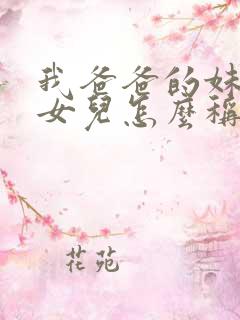 我爸爸的妹
女兒怎麼稱
花苑